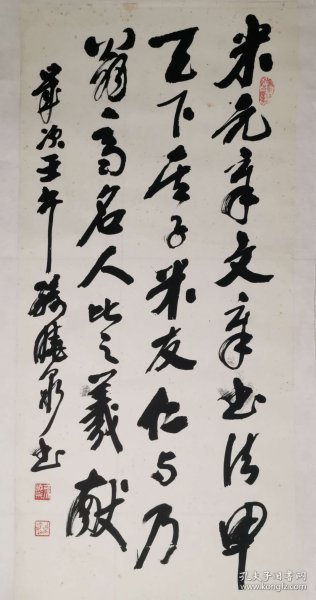 米元章文章书法甲
天下其子米友仁与乃
翁齐名人比之羲献
岁次壬午 晓泉书
孔夫子旧书网
www.kongfz.com